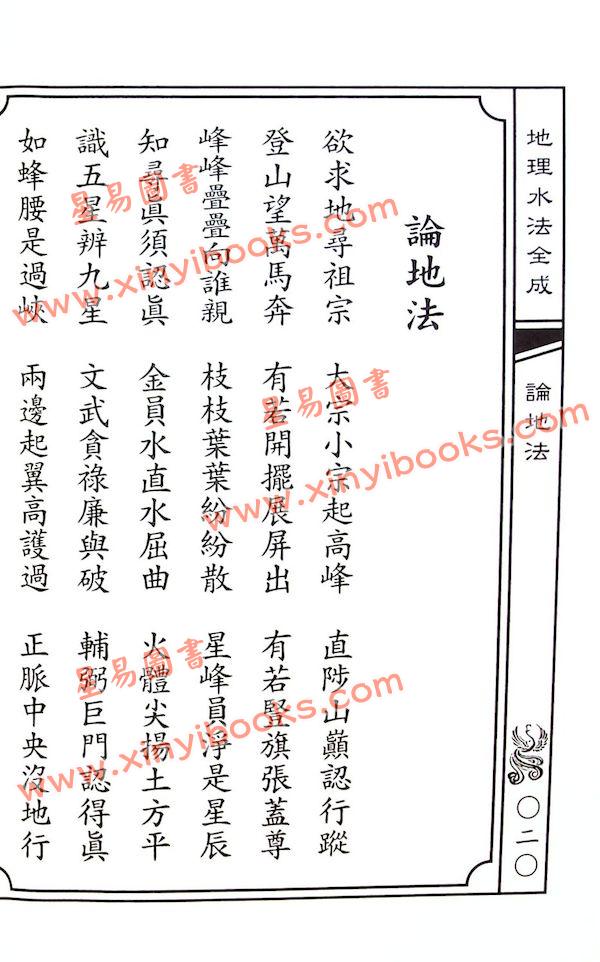 地理水法全成
論地法
〇二〇
論地法
欲求地尋祖宗 大宗小宗起高峰 直陟山巔認行蹤
登山望萬馬奔 有若開擺展屏出 有若豎旗張蓋尊
峰峰疊疊向誰親 枝枝葉葉紛紛散 星峰員淨是星辰
知尋眞須認眞 金員水直水屈曲 火體尖揚土方平
識五星辨九星 文武貪祿廉與破 輔弼巨門認得眞
如蜂腰是過峽 兩邊起翼高護過 正脈中央沒地行
星易圖書
www.xinyibooks.com
星易圖書
www.xinyibooks.com
星易圖書
www.xinyibooks.com